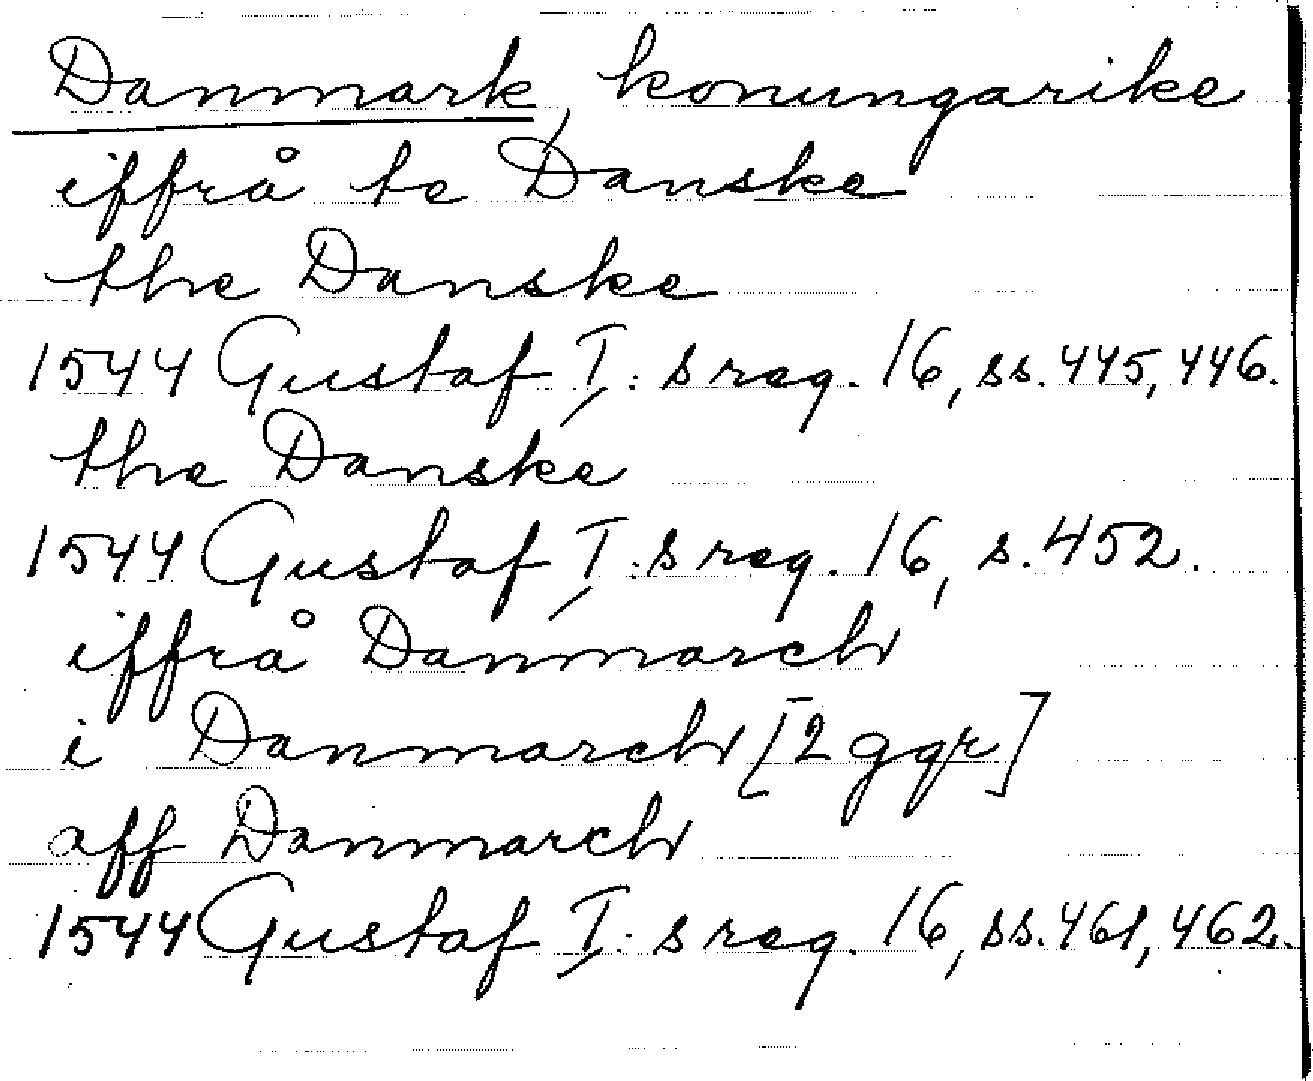 Danmark, konungarike
iffrå te Danske
the Danske
1544 Gustaf I:s reg. 16, ss. 445, 446.
the Danske
1544 Gustaf I:s reg. 16, s. 452.
iffrå Danmarch
i Danmarch [2 ggr]
aff Danmarch
1544 Gustaf I:s reg. 16, ss. 461, 462.